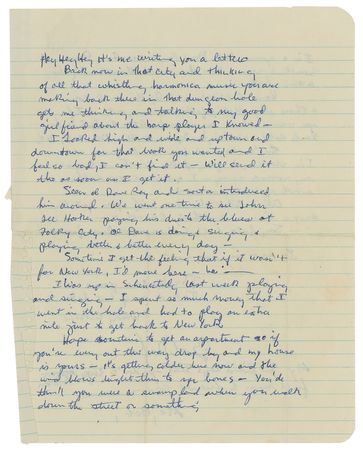 Hey Hey Hey it's me writing you a letter
Back now in that city and thinking
of all that whistling harmonica music you are
making back there in that dungeon hole
gets me thinking and talking to my good
girlfriend about the harp player I knowed –
I looked high and wide and uptown and
downtown for that book you wanted and I
feel so bad, I can't find it – Will send it
the as soon as I get it.
Seen ol Dave Ray and sorta introduced
him around. We went one time to see John
Lee Hooker paying his dues to the blues at
Folky City. Ol Dave is doing & singing &
playing better & better every day –
Sometime I get the feeling that if it wasn't
for New York, I'd move here – he's –
I was up in Schenectady last week playing
and singing – I spent so much money that I
went in the hole and had to play an extra
nite just to get back to New York
Hope sometime to get an apartment so if
you're ever out this way drop by and my house
is yours – it's getting colder here now and the
wind blows right thru to yr bones – You'd
think you were a swampland when you walk
down the street or something